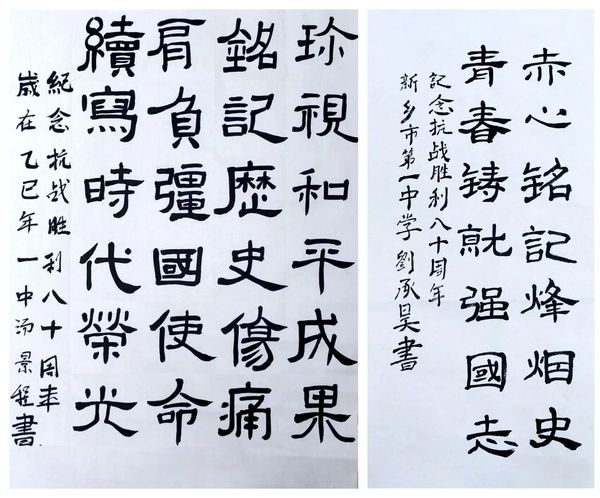 珍視和平成果
銘記歷史傷痛
肩負彊國使命
續寫時代榮光
紀念抗战胜利八十周年
歲在乙巳年一中汤景程書
赤心铭記烽烟史
青春铸就强國志
記念抗战胜利八十周年
新乡市第一中学 劉承昊書